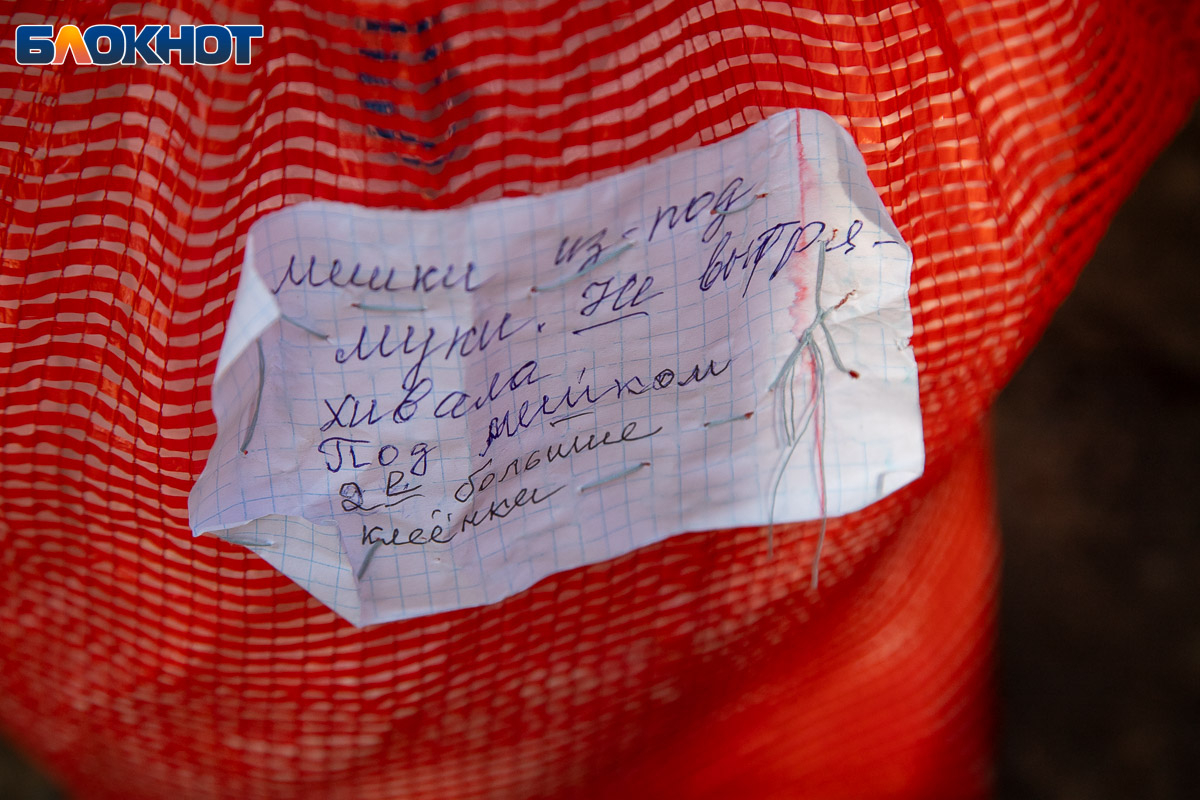 БЛОКНОТ
мешки из-под
муки. Не вытря-
хивала
Под мешком
2е большие
клеёнки